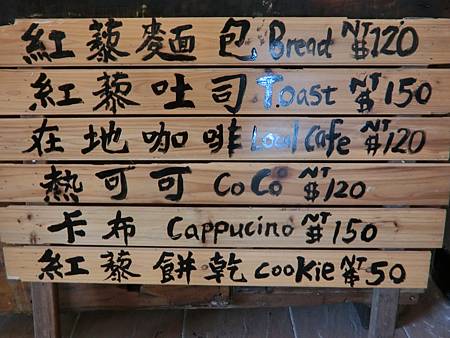 紅藜麵包 Bread NT$120
紅藜吐司 Toast NT$150
在地咖啡 Local Cafe NT$120
熱可可 CoCo NT$120
卡布 Cappucino NT$150
紅藜餅乾 cooKie NT$50